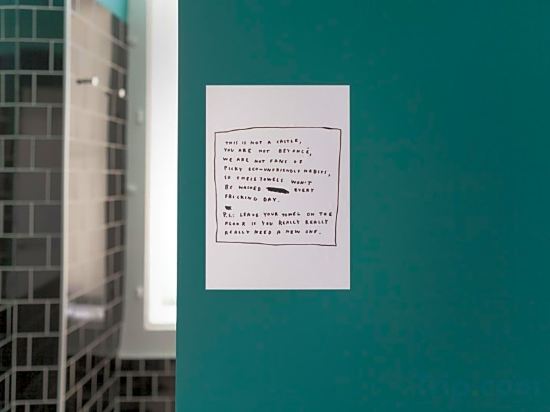 THIS IS NOT A CASTLE,
YOU ARE NOT BEYONCÉ,
WE ARE NOT FANS OF
PICKY ECO-UNFRIENDLY HABITS,
SO THESE TOWELS WON'T
BE WASHED EVERY
FRICKING DAY.
P.S.: LEAVE YOUR TOWEL ON THE
FLOOR IF YOU REALLY REALLY
REALLY NEED A NEW ONE.